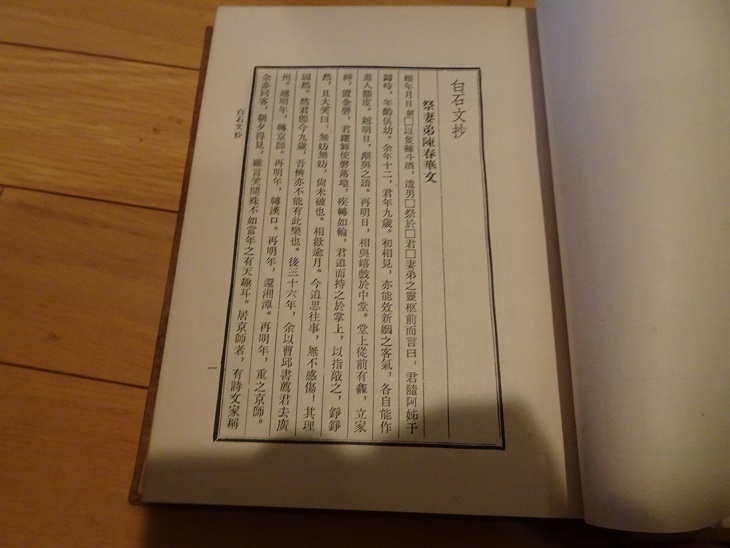 白石文抄
祭妻弟陳春華文
維年月日無□以隻雞斗酒，遣男□祭於□君□妻弟之靈柩前而言曰，君隨阿姊于
歸時，年齡俱幼。余年十二，君年九歲。初相見，亦能效新姻之客氣，各自能作
萧人態度。越明日，漸與之語。再明日，相與嬉戲於中堂。堂上從前有龕，立家
神，置金磬，君躍舞使磬落地，疾轉如輪，君追而持之於掌上，以指敲之，錚錚
然，且大笑曰，無妨無妨，尚未破也。相歡逾月。今追思往事，無不感傷！其理
固然。然君卽今九歲，吾儕亦不能有此樂也。後三十六年，余以曹邱書薦君去廣
州。越明年，轉京師。再明年，轉漢口。再明年，還湘潭。再明年，重之京師。
余亦同客，朝夕得見，雖言笑間殊不如當年之有天趣耳。居京師者，有詩文家稱
白石文抄
一